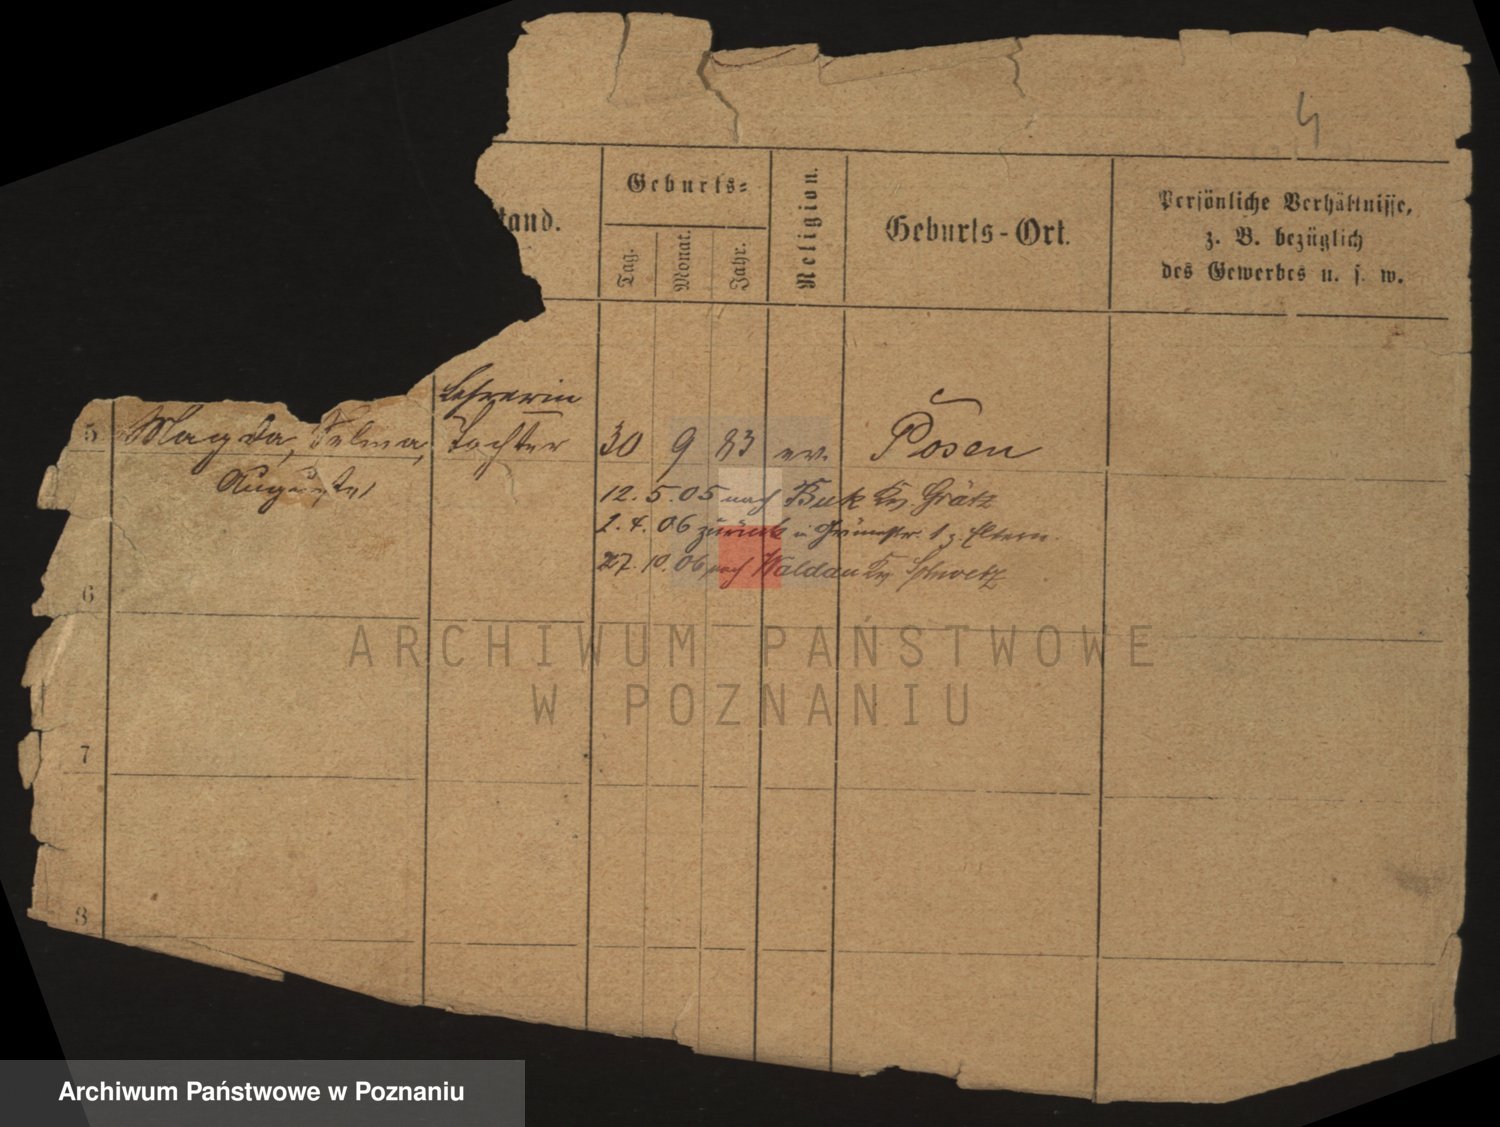 4
tand.
Geburts=
Tag.
Monat.
Jahr.
Religion.
Geburts-Ort.
Persönliche Verhältnisse,
z. B. bezüglich
des Gewerbes u. s. w.
Lehrerin
5 Magda, Selma, Tochter 30 9 83 ev. Posen
Auguste
12. 5. 05 nach Buk Kr. Grätz
2. 4. 06 zurück Grünestr. 1 z. Eltern.
27. 10. 06 nach Waldau Kr. Schwetz
6
7
8
ARCHIWUM PAŃSTWOWE
W POZNANIU
Archiwum Państwowe w Poznaniu